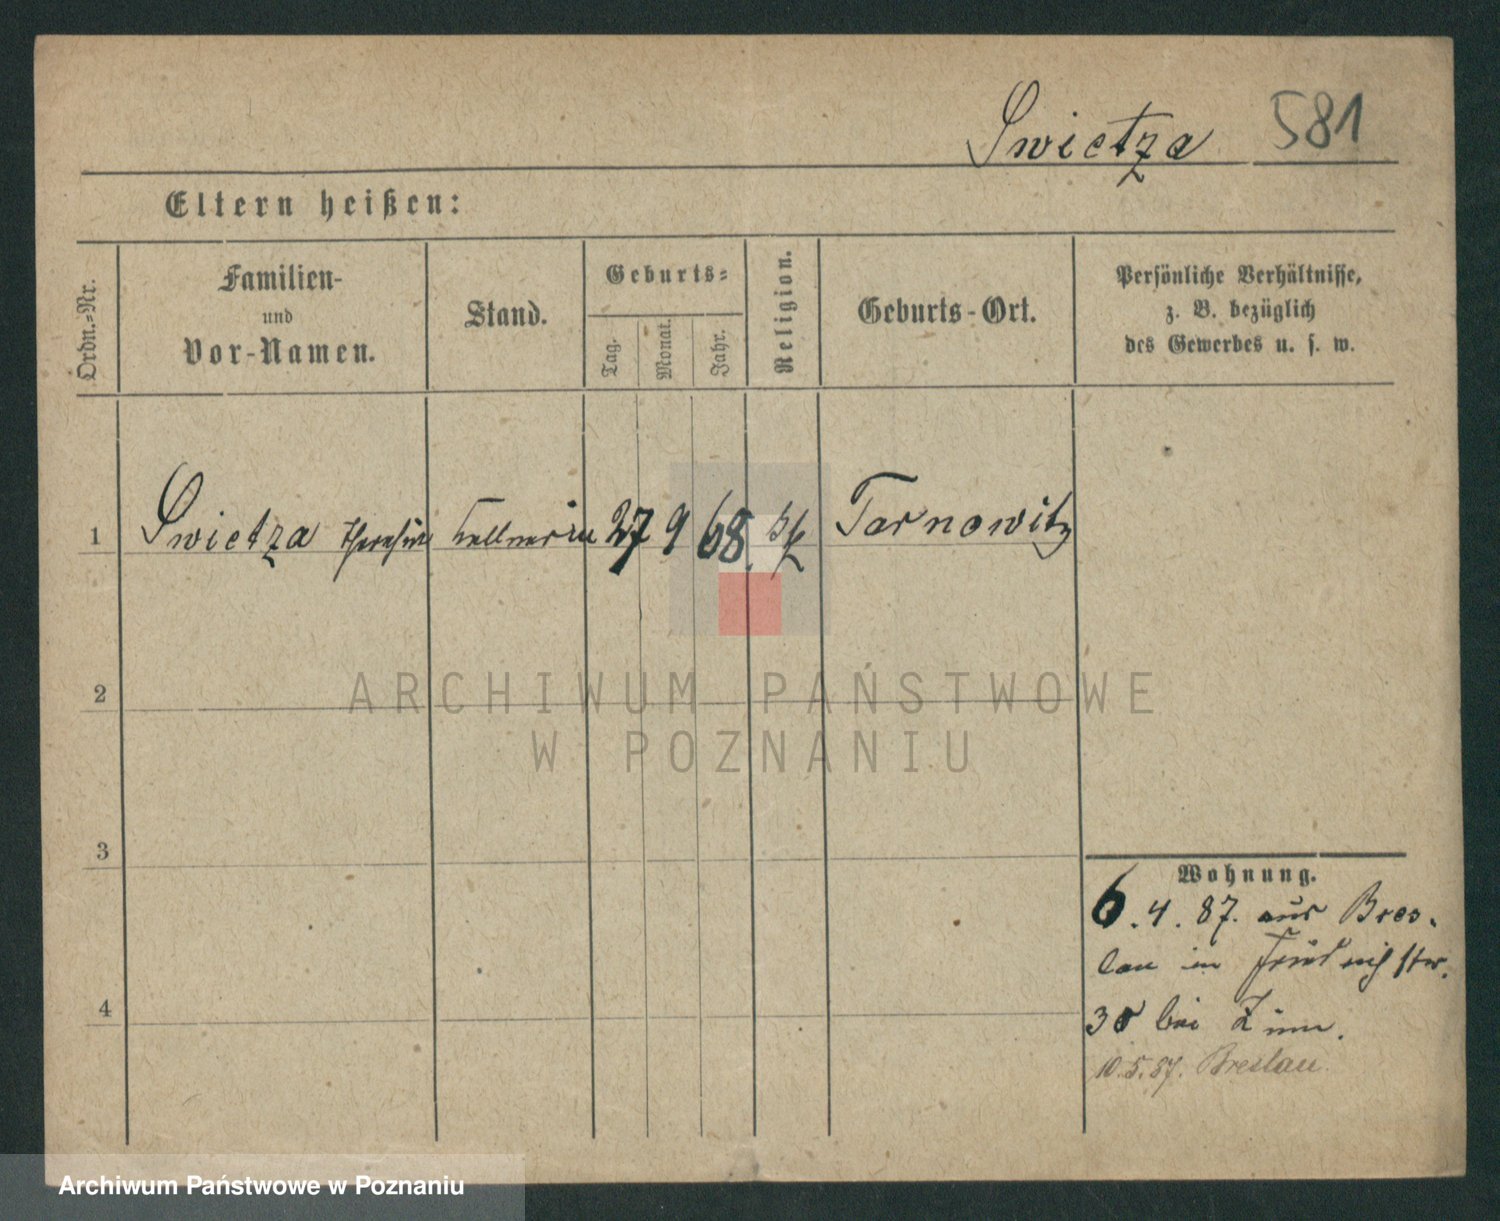 Swietza 581
Eltern heißen:
Ordn.-Nr.
Familien-
und
Vor-Namen.
Stand.
Geburts-
Tag.
Monat.
Jahr.
Religion.
Geburts-Ort.
Persönliche Verhältnisse,
z. B. bezüglich
des Gewerbes u. s. w.
1 Swietza Theresia Kellnerin 27 9 68. Tarnowitz
2
3
4
Wohnung.
6. 4. 87. aus Bres-
lau in Friedrichstr.
30 bei
10. 5. 87. Breslau.
ARCHIWUM PAŃSTWOWE
W POZNANIU
Archiwum Państwowe w Poznaniu